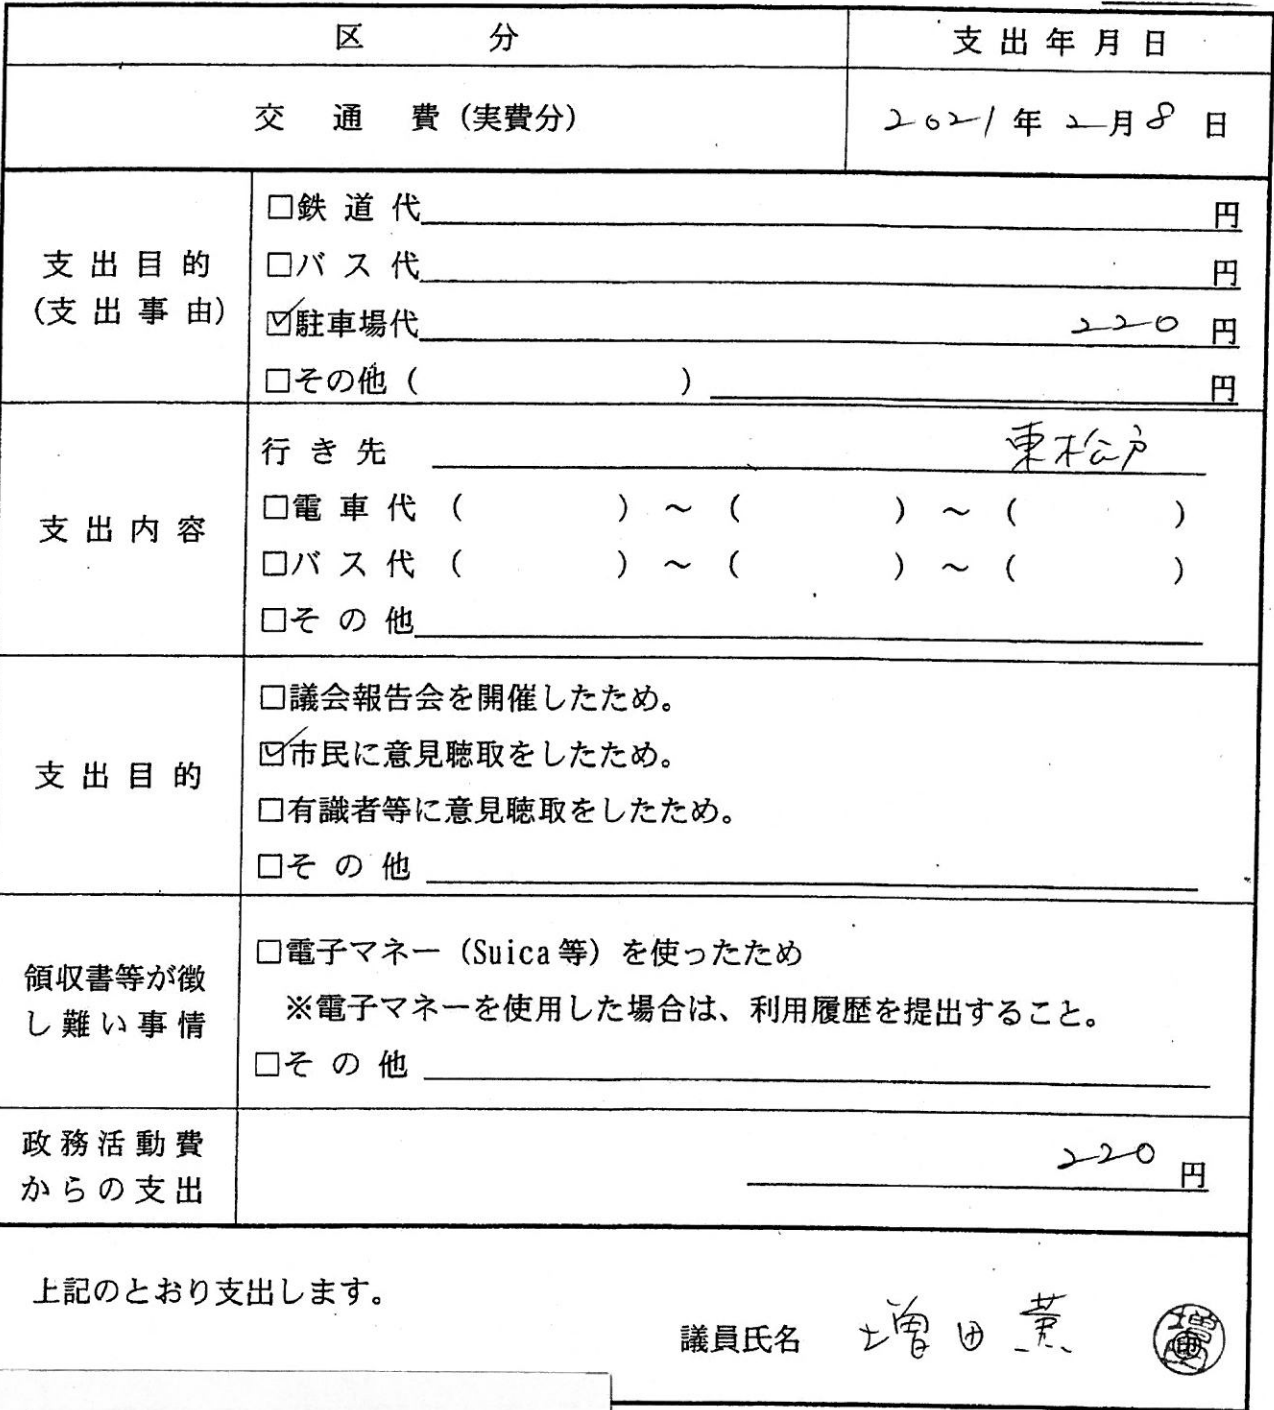 区 分 支出年月日
交通費（実費分） 2021年2月8日
支出目的
（支出事由）
□鉄道代 円
□バス代 円
☑駐車場代 220円
□その他（ ） 円
支出内容
行き先 東松戸
□電車代（ ）～（ ）～（ ）
□バス代（ ）～（ ）～（ ）
□その他
支出目的
□議会報告会を開催したため。
☑市民に意見聴取をしたため。
□有識者等に意見聴取をしたため。
□その他
領収書等が徴
し難い事情
□電子マネー（Suica等）を使ったため
※電子マネーを使用した場合は、利用履歴を提出すること。
□その他
政務活動費
からの支出
220円
上記のとおり支出します。
議員氏名 増田薫